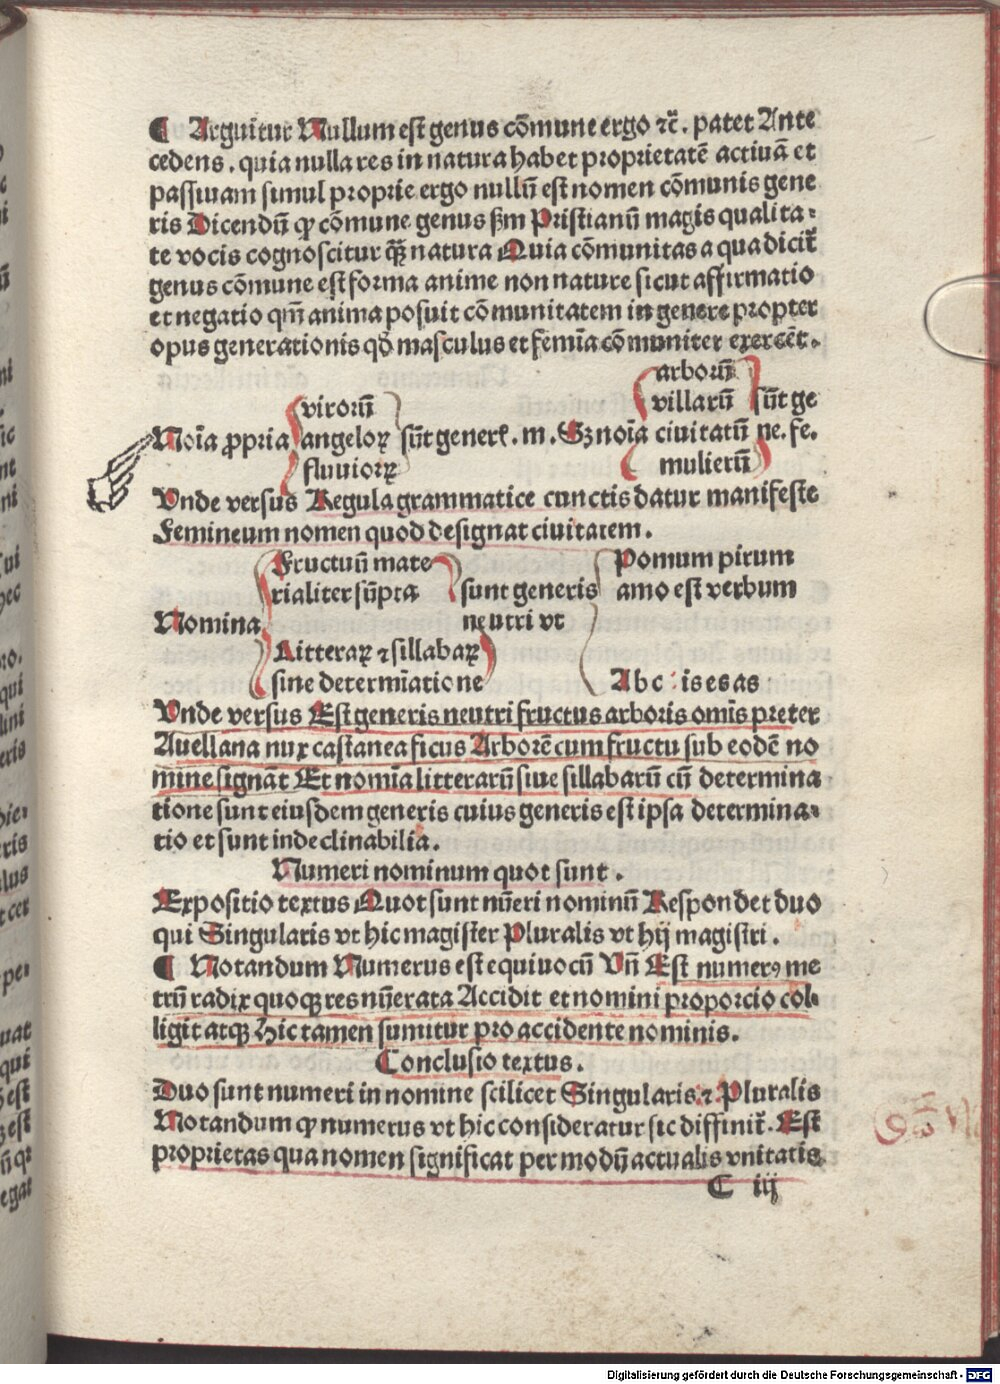 ¶ Arguitur Nullum est genus cõmune ergo ⁊c̃. patet Ante
cedens. quia nulla res in natura habet proprietatẽ actiuã et
passiuam simul proprie ergo nullũ est nomen cõmunis gene
ris Dicendũ ꝙ cõmune genus ẜm Pristianũ magis qualita⸗
te vocis cognoscitur q̃ꝫ natura Quia cõmunitas a qua dicit̃
genus cõmune est forma anime non nature sicut affirmatio
et negatio qm̃ anima posuit cõmunitatem in genere propter
opus generationis qd̃ masculus et femĩa cõmuniter exercẽt.
arborũ
virorũ villarũ sũt ge
Noĩa ꝓpria angeloꝝ sũt generꝭ. m. Sꝫ noĩa ciuitatũ ne. fe.
fluuioꝝ mulierũ
Vnde versus Regula grammatice cunctis datur manifeste
Femineum nomen quod designat ciuitatem.
Fructuũ mate Pomum pirum
rialiter sũpta sunt generis amo est verbum
Nomina neutri vt
Litteraꝝ ⁊ sillabaꝝ
sine determĩatione A b c : is es as
Vnde versus Est generis neutri fructus arboris om̃is preter
Auellana nux castanea ficus Arborẽ cum fructu sub eodẽ no
mine signãt Et nomĩa litterarũ siue sillabarũ cũ determina
tione sunt eiusdem generis cuius generis est ipsa determina⸗
tio et sunt indeclinabilia.
Numeri nominum quot sunt.
Expositio textus Quot sunt nũeri nominũ Respondet duo
qui Singularis vt hic magister Pluralis vt hij magistri.
¶ Notandum Numerus est equiuocũ Vñ Est numerꝯ me
trũ radix quoqꝫ res nũerata Accidit et nomini proporcio col⸗
ligit atqꝫ Hic tamen sumitur pro accidente nominis.
Conclusio textus.
Duo sunt numeri in nomine scilicet Singularis ⁊ Pluralis
Notandum ꝙ numerus vt hic consideratur sic diffinit̃. Est
proprietas qua nomen significat per modũ actualis vnitatis
C iij
Digitalisierung gefördert durch die Deutsche Forschungsgemeinschaft - DFG